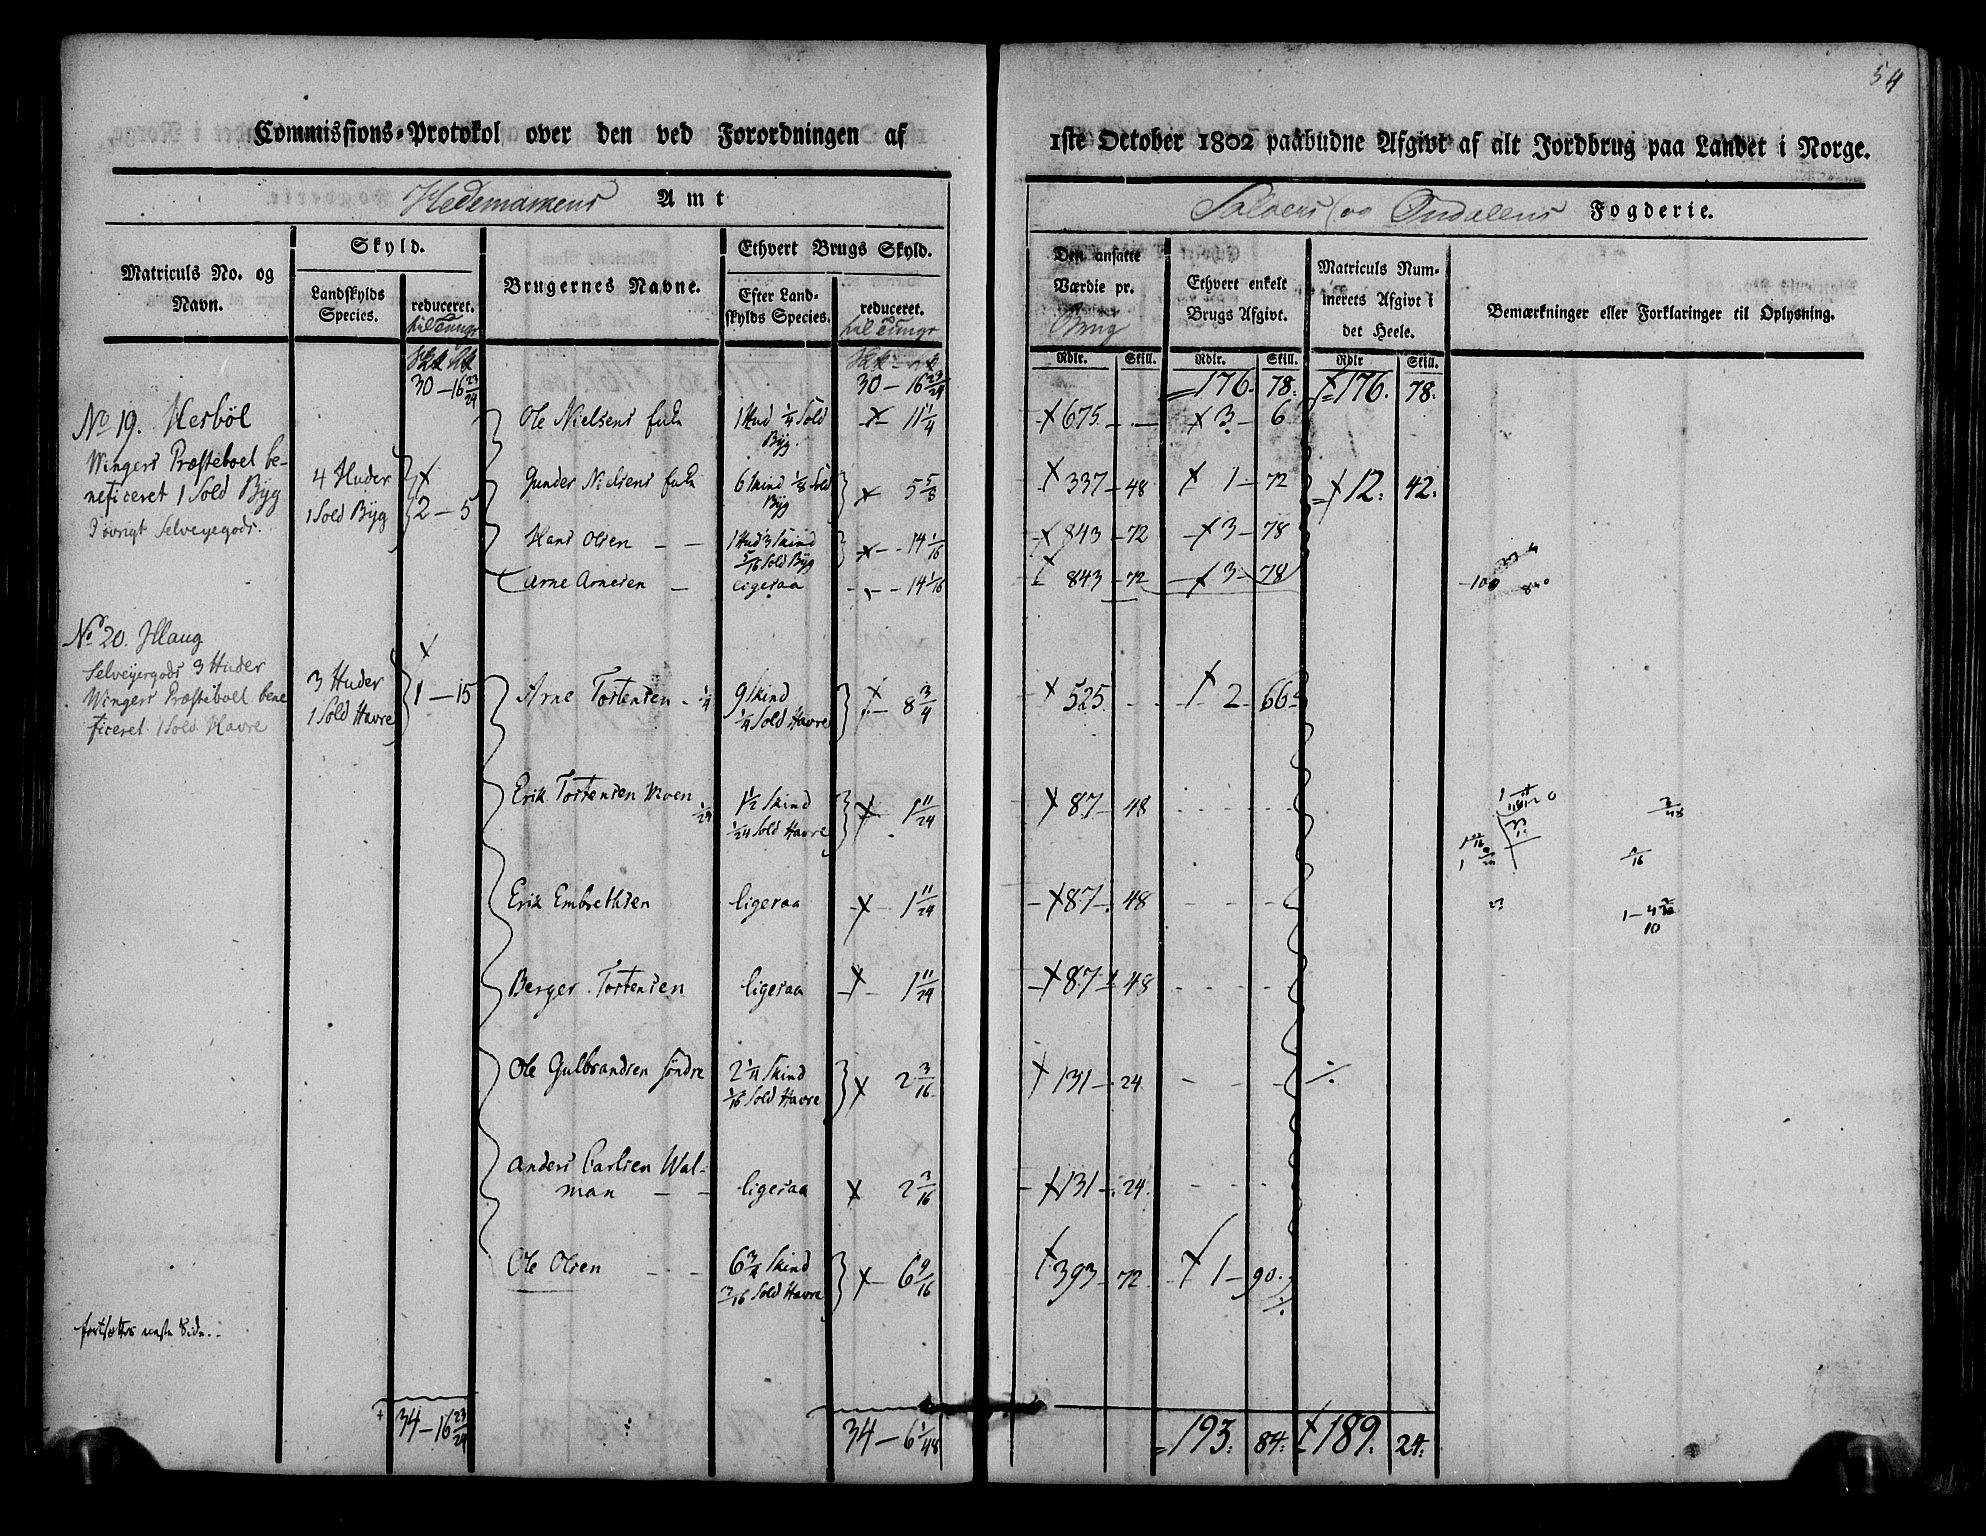 54
Commissions-Protokol over den ved Forordningen af 1ste October 1802 paabudne Afgivt af alt Jordbrug paa Landet i Norge.
Hedemarkens Amt
Soløers og Fogderie.
Matriculs No. og Navn.
Skyld.
Landskylds Species.
reduceret.
til Tunge
Brugernes Navne.
Ethvert Brugs Skyld.
Efter Landskylds Species.
reduceret.
til Tunge
Den ansatte Værdie pr.
Brug
Ethvert enkelt Brugs Afgivt.
Matriculs Nummerets Afgivt i det Heele.
Bemærkninger eller Forklaringer til Oplysning.
Rdlr. Skill. Rdlr. Skill. Rdlr Skill.
30 – 16 23/24 30 – 16 23/24 176. 78. 176. 78.
No 19. Herböl
Wingers Præsteboel be-
neficeret 1 Sold Byg
I øvrigt Selveyegods.
4 Huder
1 Sold Byg
2 – 5
Ole Nielsens 1 Hud 1/4 Sold Byg. 11 1/4 675 – – 3 – 6
Gunder Nielsens 6 Skind 1/8 Sold Byg 5 5/8 337 – 48 1 – 72 12. 42.
Hans Olsen – – 1 Hud 3 Skind 5/16 Sold Byg 14 1/16 843 – 72 3 – 78
Arne Arnesen – ligesaa 14 1/16 843 – 72 3 – 78
No 20. Haug
Selveyergods 3 Huder
Wingers Præsteboel bene
ficeret 1 Sold Havre
3 Huder
1 Sold Havre
1 – 15
Arne Tostensen – 1/4 9 Skind 1/4 Sold Havre 8 3/4 525 – – 2 – 66
Erik Tostensen Moen 1/24 1 1/2 Skind 1/24 Sold Havre 1 11/24 87 – 48
Erik Embrethsen ligesaa 1 11/24 87 – 48
Berger Tostensen ligesaa 1 11/24 87 – 48
Ole Gulbrandsen Söndre 2 1/4 Skind 1/16 Sold Havre 2 3/16 131 – 24
Anders Carlsen Wal-
man – – ligesaa 2 3/16 131 – 24
Ole Olsen – – 6 3/4 Skind 3/16 Sold Havre 6 9/16 393 – 72 1 – 90
fortsættes neste Side.
34 – 16 23/24 34 – 6 1/48 193. 84. 189. 24.